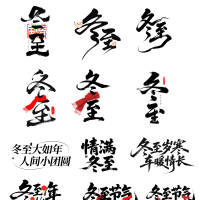 冬至
冬至
冬至
冬至
冬至
冬至
冬至大如年
人间小团圆
情满
冬至
冬至岁寒
车暖情长
冬至年
冬至节气
冬至节气